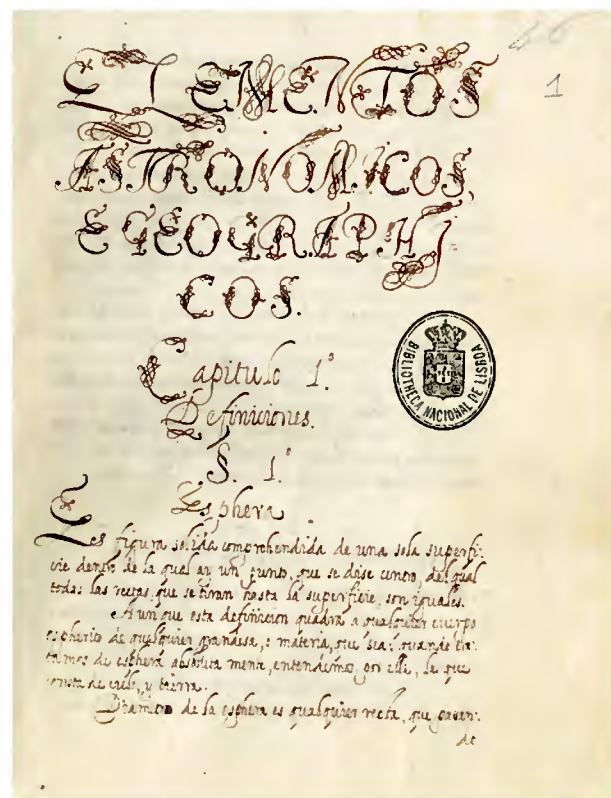 56
1
ELEMENTOS
ASTRONOMICOS,
E GEOGRAPHI-
COS.
Capitulo 1º.
Definiciones.
§. 1º
Esphera
Es figura solida comprehendida de una sola superfi-
cie dentro de la qual ay un punto, que se dise centro, del qual
todas las rectas, que se tiran hasta la superficie, son iguales.
Aunque esta definicion quadra a qualquier cuerpo
espherico de qualquier grandesa, o materia, que sea; quando tra-
tamos de esphera absoluta mente, entendemos por ella, la que
consta de cielo, y tierra.
Diametro de la esphera es qualquier recta, que
de
BIBLIOTHECA NACIONAL DE LISBOA